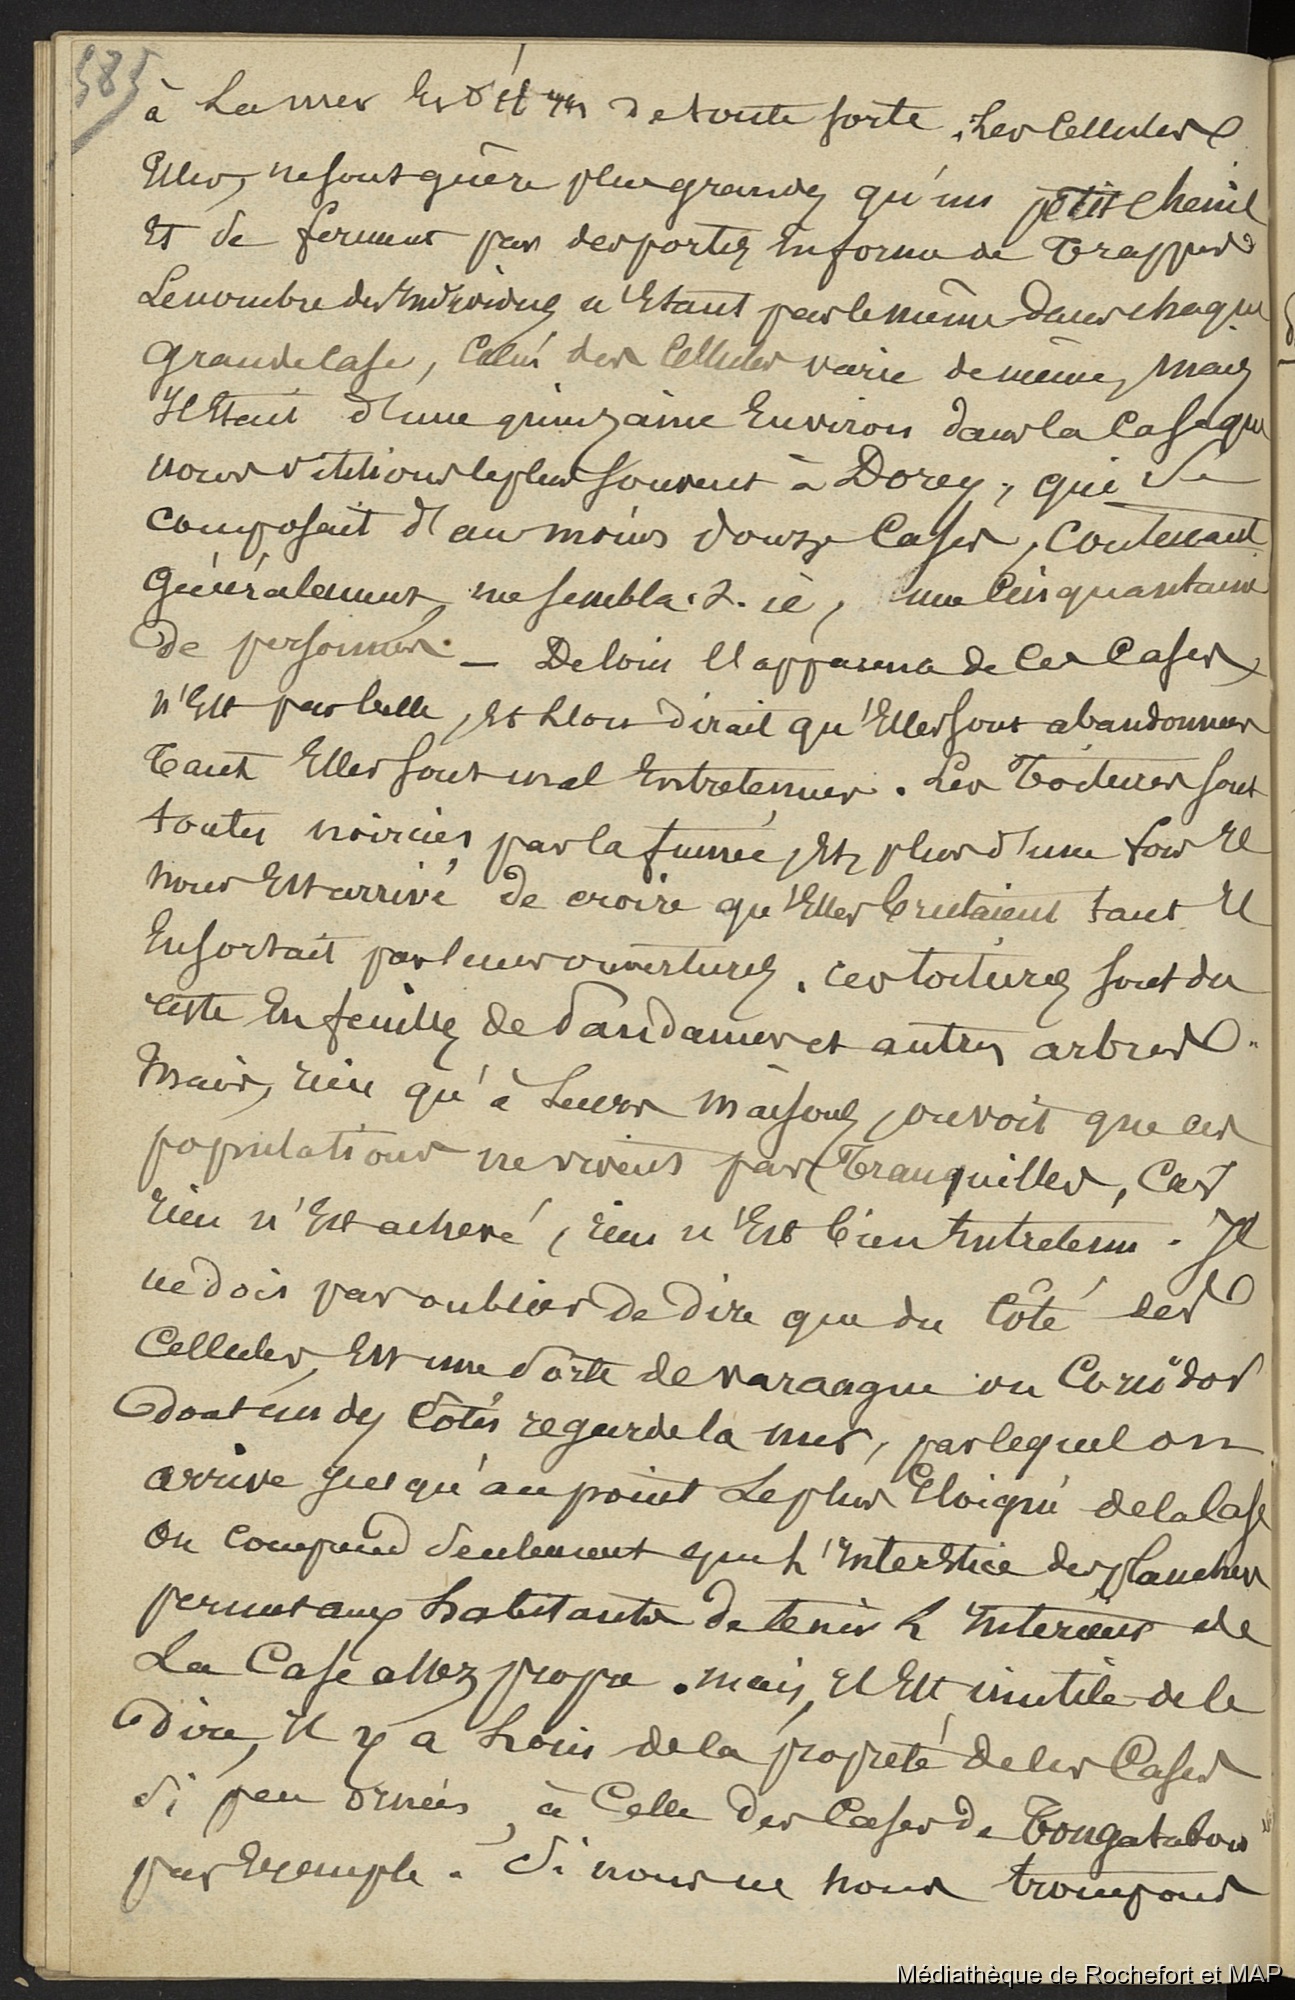 585
à La mer Les détritus de toute sorte. Les Cellules
Elles, ne sont guère plus grandes qu'un petit chenil
Et se ferment par des portes En forme de Trappes
Le nombre des Individus n'Etant pas le même dans chaque
grande Case, Celui des Cellules varie de même, mais
Il Etait d'une quinzaine Environ dans la Case que
nous visitions le plus souvent à Dorey, qui se
composait d'au moins douze Cases, Contenant
Généralement, me sembla-t-il, une Cinquantaine
de personnes. — De loin l'apparence de Ces Cases
n'Est pas belle, Et L'on dirait qu'Elles sont abandonnées
Tant Elles sont mal Entretenues. Les Toitures sont
toutes noircies par la fumée, Et, plus d'une fois Il
nous Est arrivé de croire qu'Elles brulaient tant Il
En sortait par leurs ouvertures. ces toitures sont du
reste En feuilles de Pandanus et autres arbres.
Mais, rien qu'à Leurs maisons, on voit que ces
populations ne vivent pas Tranquilles, Car
rien n'Est achevé, rien n'Est bien Entretenu. Je
ne dois pas oublier de dire que du Côté des
Cellules, Est une sorte de varangue ou Corridor
dont un des Côtés regarde la mer, par lequel on
arrive jusqu'au point Le plus Eloigné de la Case
On comprend seulement que L'Interstice des planches
permet aux habitants de tenir L'Interieur de
La Case assez propre. mais, Il Est inutile de le
dire, Il y a Loin de la propreté de les Cases
si peu ornées, à Celle des Cases de Tongatabou
par Exemple. Si nous ne nous trompons
Médiathèque de Rochefort et MAP